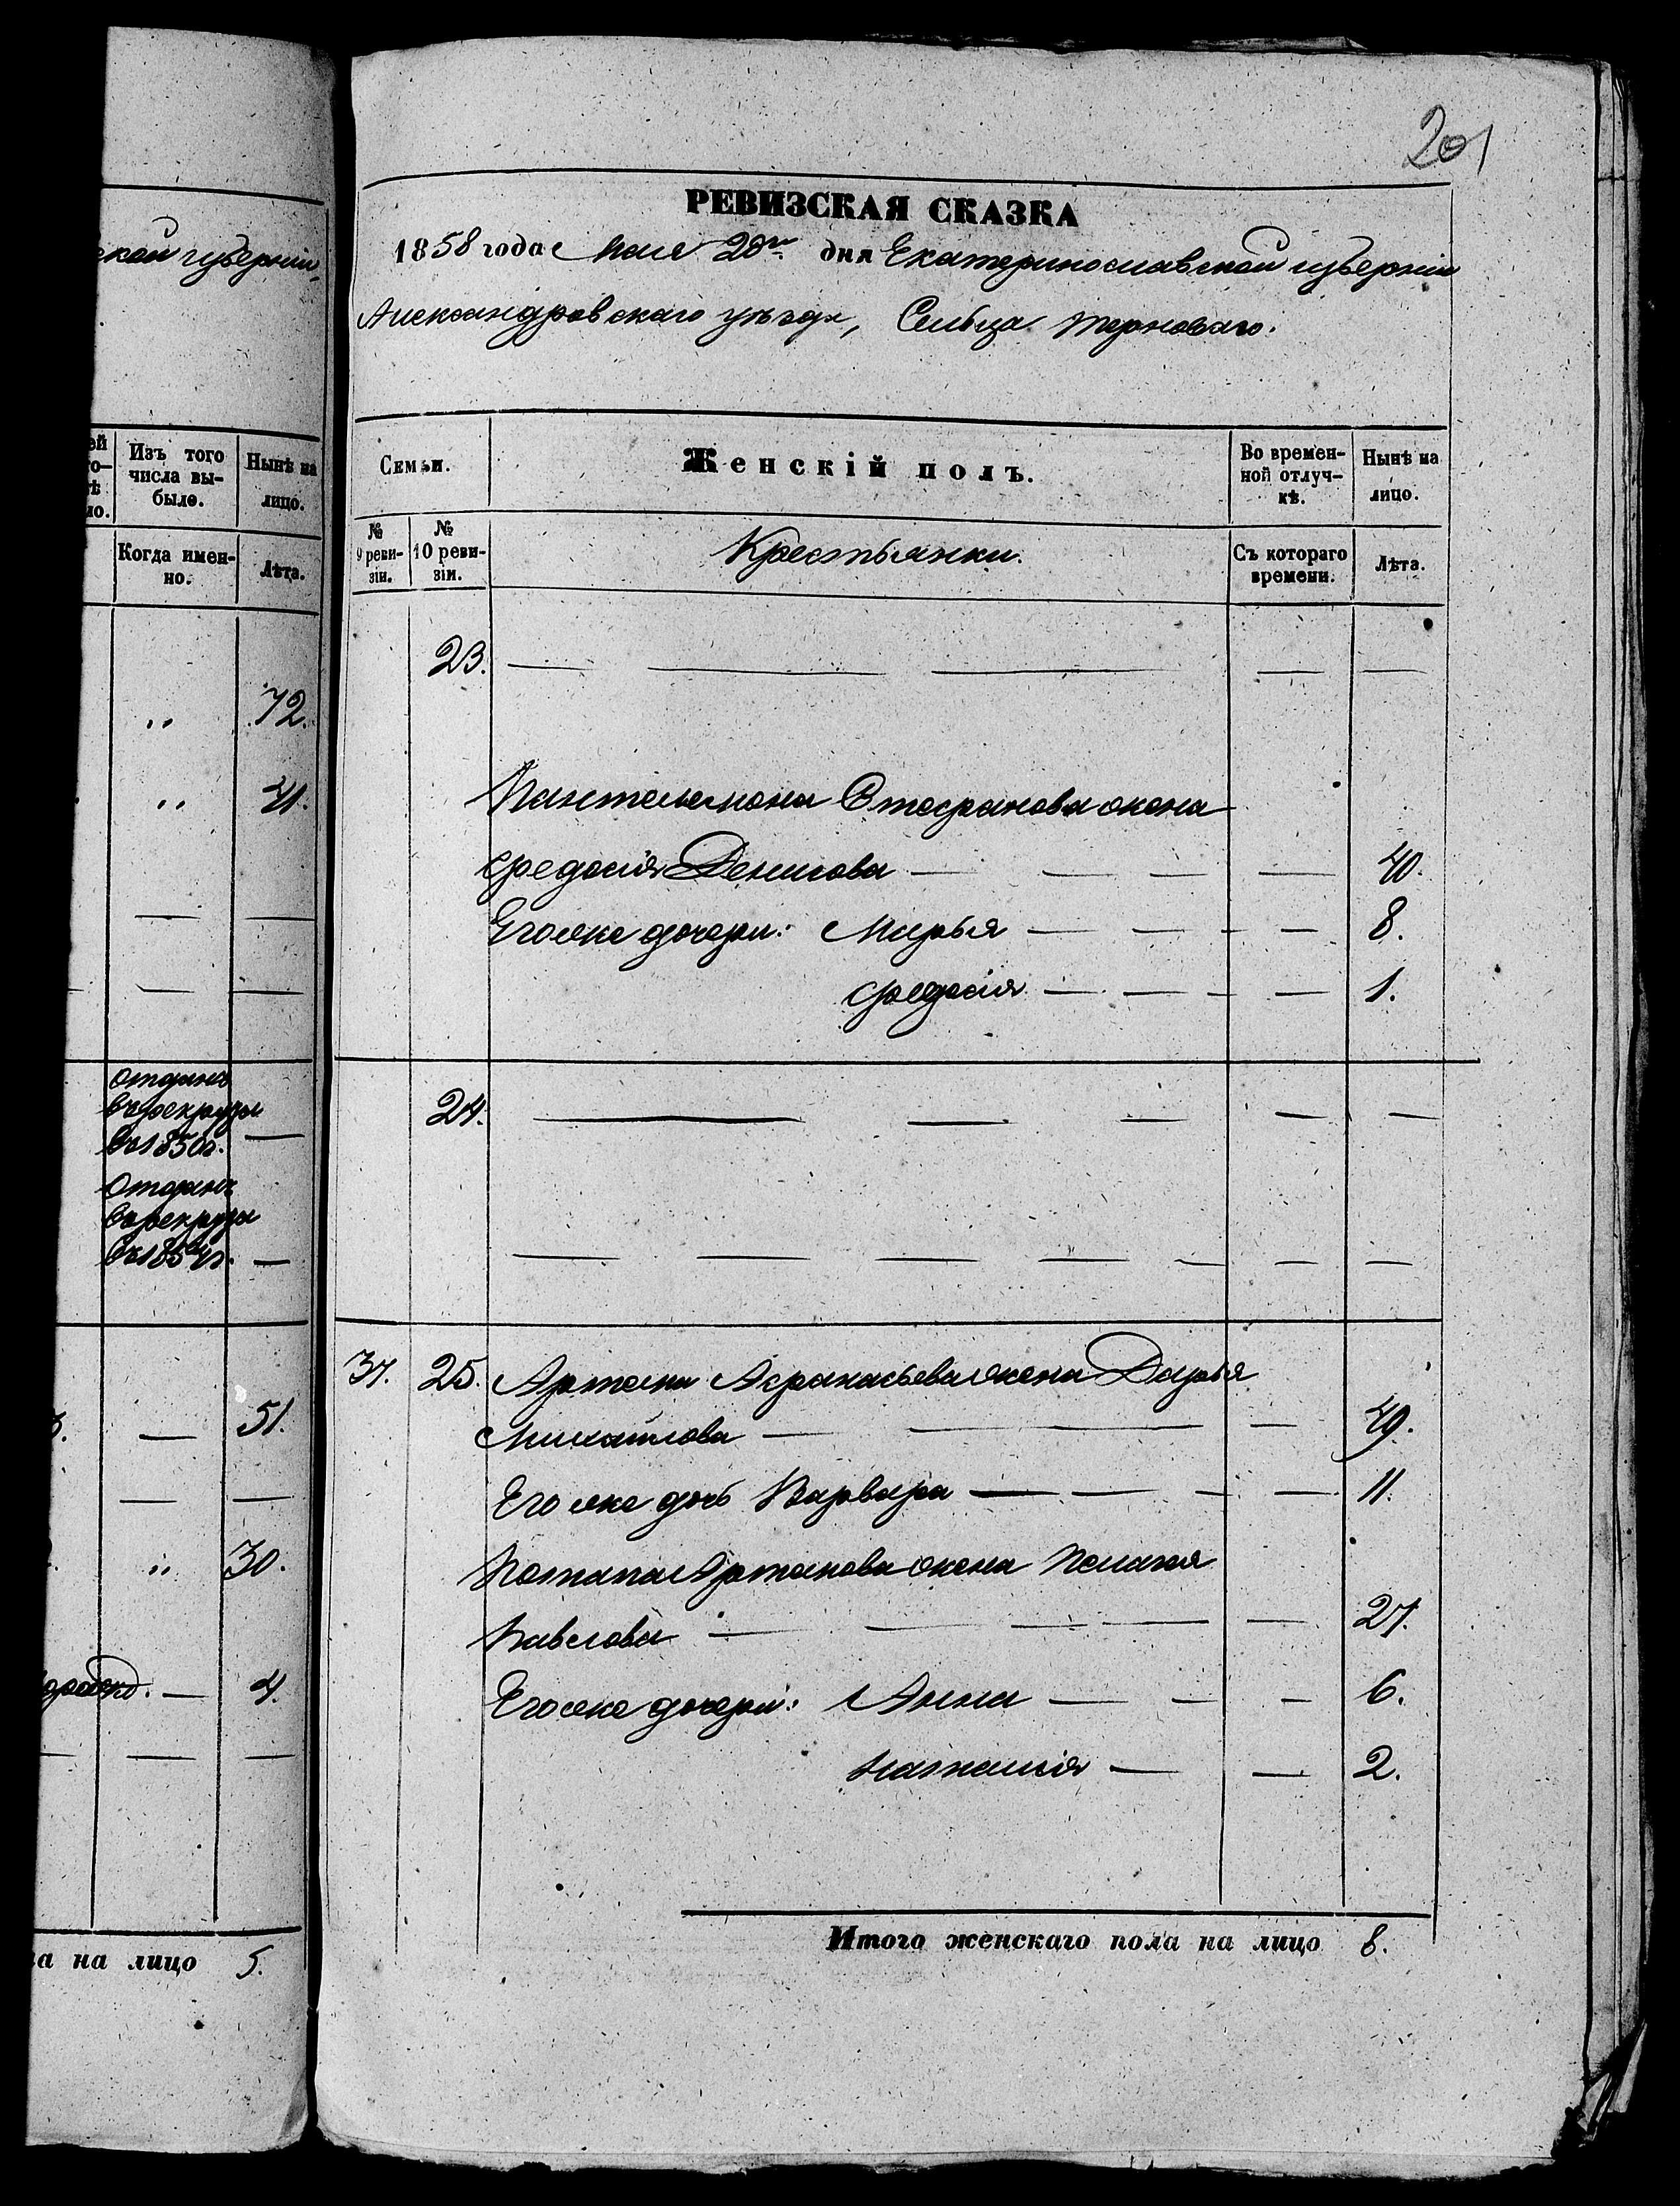 201
ской губерніи
РЕВИЗСКАЯ СКАЗКА
1858 года Мая 20го дня Екатеринославской губерніи
Александровскаго уѣзда, Сельца Терноваго.
Изъ того числа вы-было.
Нынѣ на лицо.
Когда имен-но.
Лѣта.
72.
41.
Отданъ
въ рекруты
въ 1850г.
Отданъ
въ рекруты
въ 1854г.
51.
30.
4.
на лицо 5.
Семьи.
Женскій полъ.
Во времен-ной отлуч-кѣ.
Нынѣ на лицо.
№ 9 реви-зіи.
№ 10 реви-зіи.
Крестьянки.
Съ котораго времени.
Лѣта.
23.
Пантелемона Стефанова жена
Федосія Денисова 40.
Его же дочери: Марья 8.
Федосія 1.
24.
37. 25. Артема Афанасьева жена Дарья
Михайлова 49.
Его же дочь Варвара 11.
Потапа Артемова жена Пелагея
Павлова 27.
Его же дочери: Анна 6.
Наталія 2.
Итого женскаго пола на лицо 8.